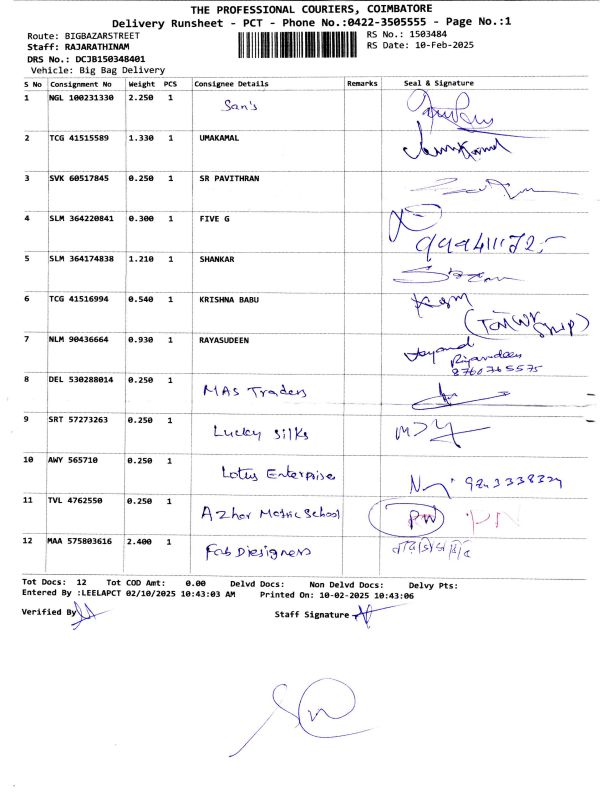 THE PROFESSIONAL COURIERS, COIMBATORE
Delivery Runsheet - PCT - Phone No.:0422-3505555 - Page No.:1
Route: BIGBAZARSTREET RS No.: 1503484
Staff: RAJARATHINAM RS Date: 10-Feb-2025
DRS No.: DCJB150348401
Vehicle: Big Bag Delivery
S No Consignment No Weight PCS Consignee Details Remarks Seal & Signature
1 NGL 100231330 2.250 1 San's
2 TCG 41515589 1.330 1 UMAKAMAL
3 SVK 60517845 0.250 1 SR PAVITHRAN
4 SLM 364220841 0.300 1 FIVE G
5 SLM 364174838 1.210 1 SHANKAR
6 TCG 41516994 0.540 1 KRISHNA BABU
7 NLM 90436664 0.930 1 RAYASUDEEN
8760765575
8 DEL 530288014 0.250 1 MAS Traders
9 SRT 57273263 0.250 1 Lucky silks
10 AWY 565710 0.250 1 Lotus Enterprise
11 TVL 4762550 0.250 1 Azhar Matric School
12 MAA 575803616 2.400 1 Fab Diesigners
Tot Docs: 12 Tot COD Amt: 0.00 Delvd Docs: Non Delvd Docs: Delvy Pts:
Entered By :LEELAPCT 02/10/2025 10:43:03 AM Printed On: 10-02-2025 10:43:06
Verified By Staff Signature